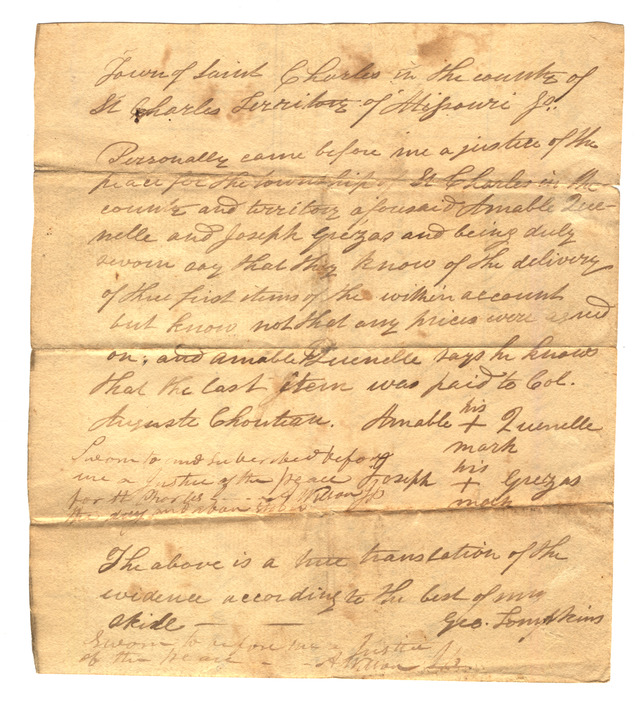 Town of Saint Charles in the county of
St Charles Territory of Missouri Js.
Personally came before me a justice of the
peace for the township of St Charles in the
county and territory afousaid Amable Que-
nelle and Joseph Grezas and being duly
sworn say that they know of the delivery
of three first items of the within account
but know not that any prices were agreed
on; and Amable Quenelle says he knows
that the last item was paid to Col.
Auguste Chouteau. Amable his + mark Quenelle
Joseph his + mark Grezas
Sworn to and subscribed before
me a Justice of the peace
for St Charles
the day and
The above is a true translation of the
evidence according to the best of my
skill — — Geo. Tompkins
Sworn to before me a Justice
of the peace